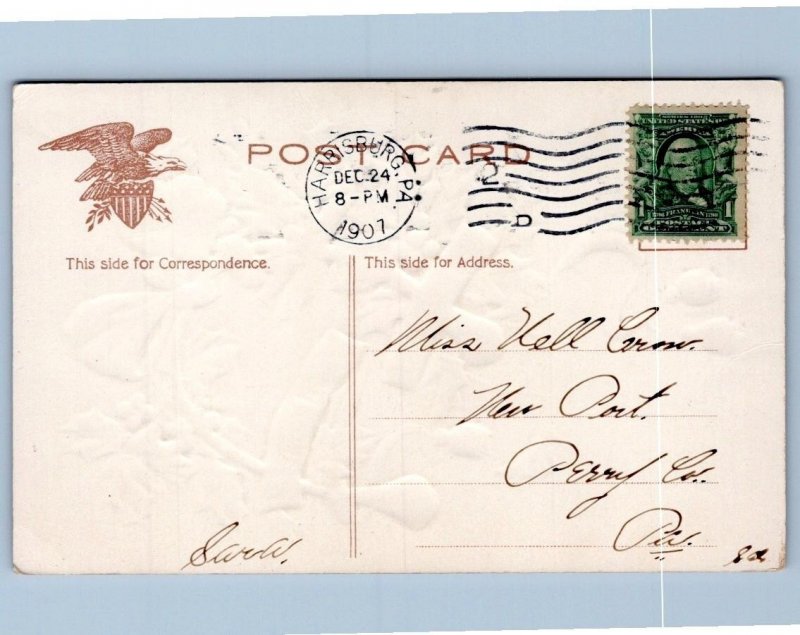 POST CARD
HARRISBURG, PA.
DEC. 24
8-PM
1907
2
D
UNITED STATES
FRANKLIN
POSTAGE
1
This side for Correspondence.
This side for Address.
Miss Nell Crow.
New Port.
Perry Co.
Pa.